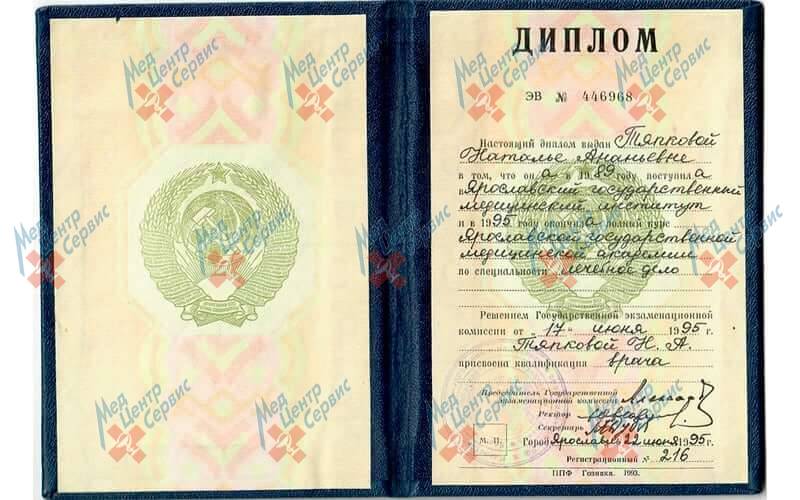 ДИПЛОМ
ЭВ № 446968
Настоящий диплом выдан Тяпковой
Наталье Ананьевне
в том, что он а в 1989 году поступил а
в Ярославский государственный
медицинский институт
и в 1995 году окончил а полный курс
Ярославской государственной
медицинской академии
по специальности лечебное дело
Решением Государственной экзаменационной
комиссии от " 17 " июня 1995 г.
Тяпковой Н. А.
присвоена квалификация врача
Председатель Государственной
экзаменационной комиссии
Ректор
Секретарь
М. П.
Город Ярославль 22 июня 1995 г.
Регистрационный № 216
ППФ Гознака. 1993.
Мед Центр Сервис
Мед Центр Сервис
Мед Центр Сервис
Мед Центр Сервис
Мед Центр Сервис
Мед Центр Сервис
Мед Центр Сервис
Мед Центр Сервис
Мед Центр Сервис
Мед Центр Сервис
Мед Центр Сервис